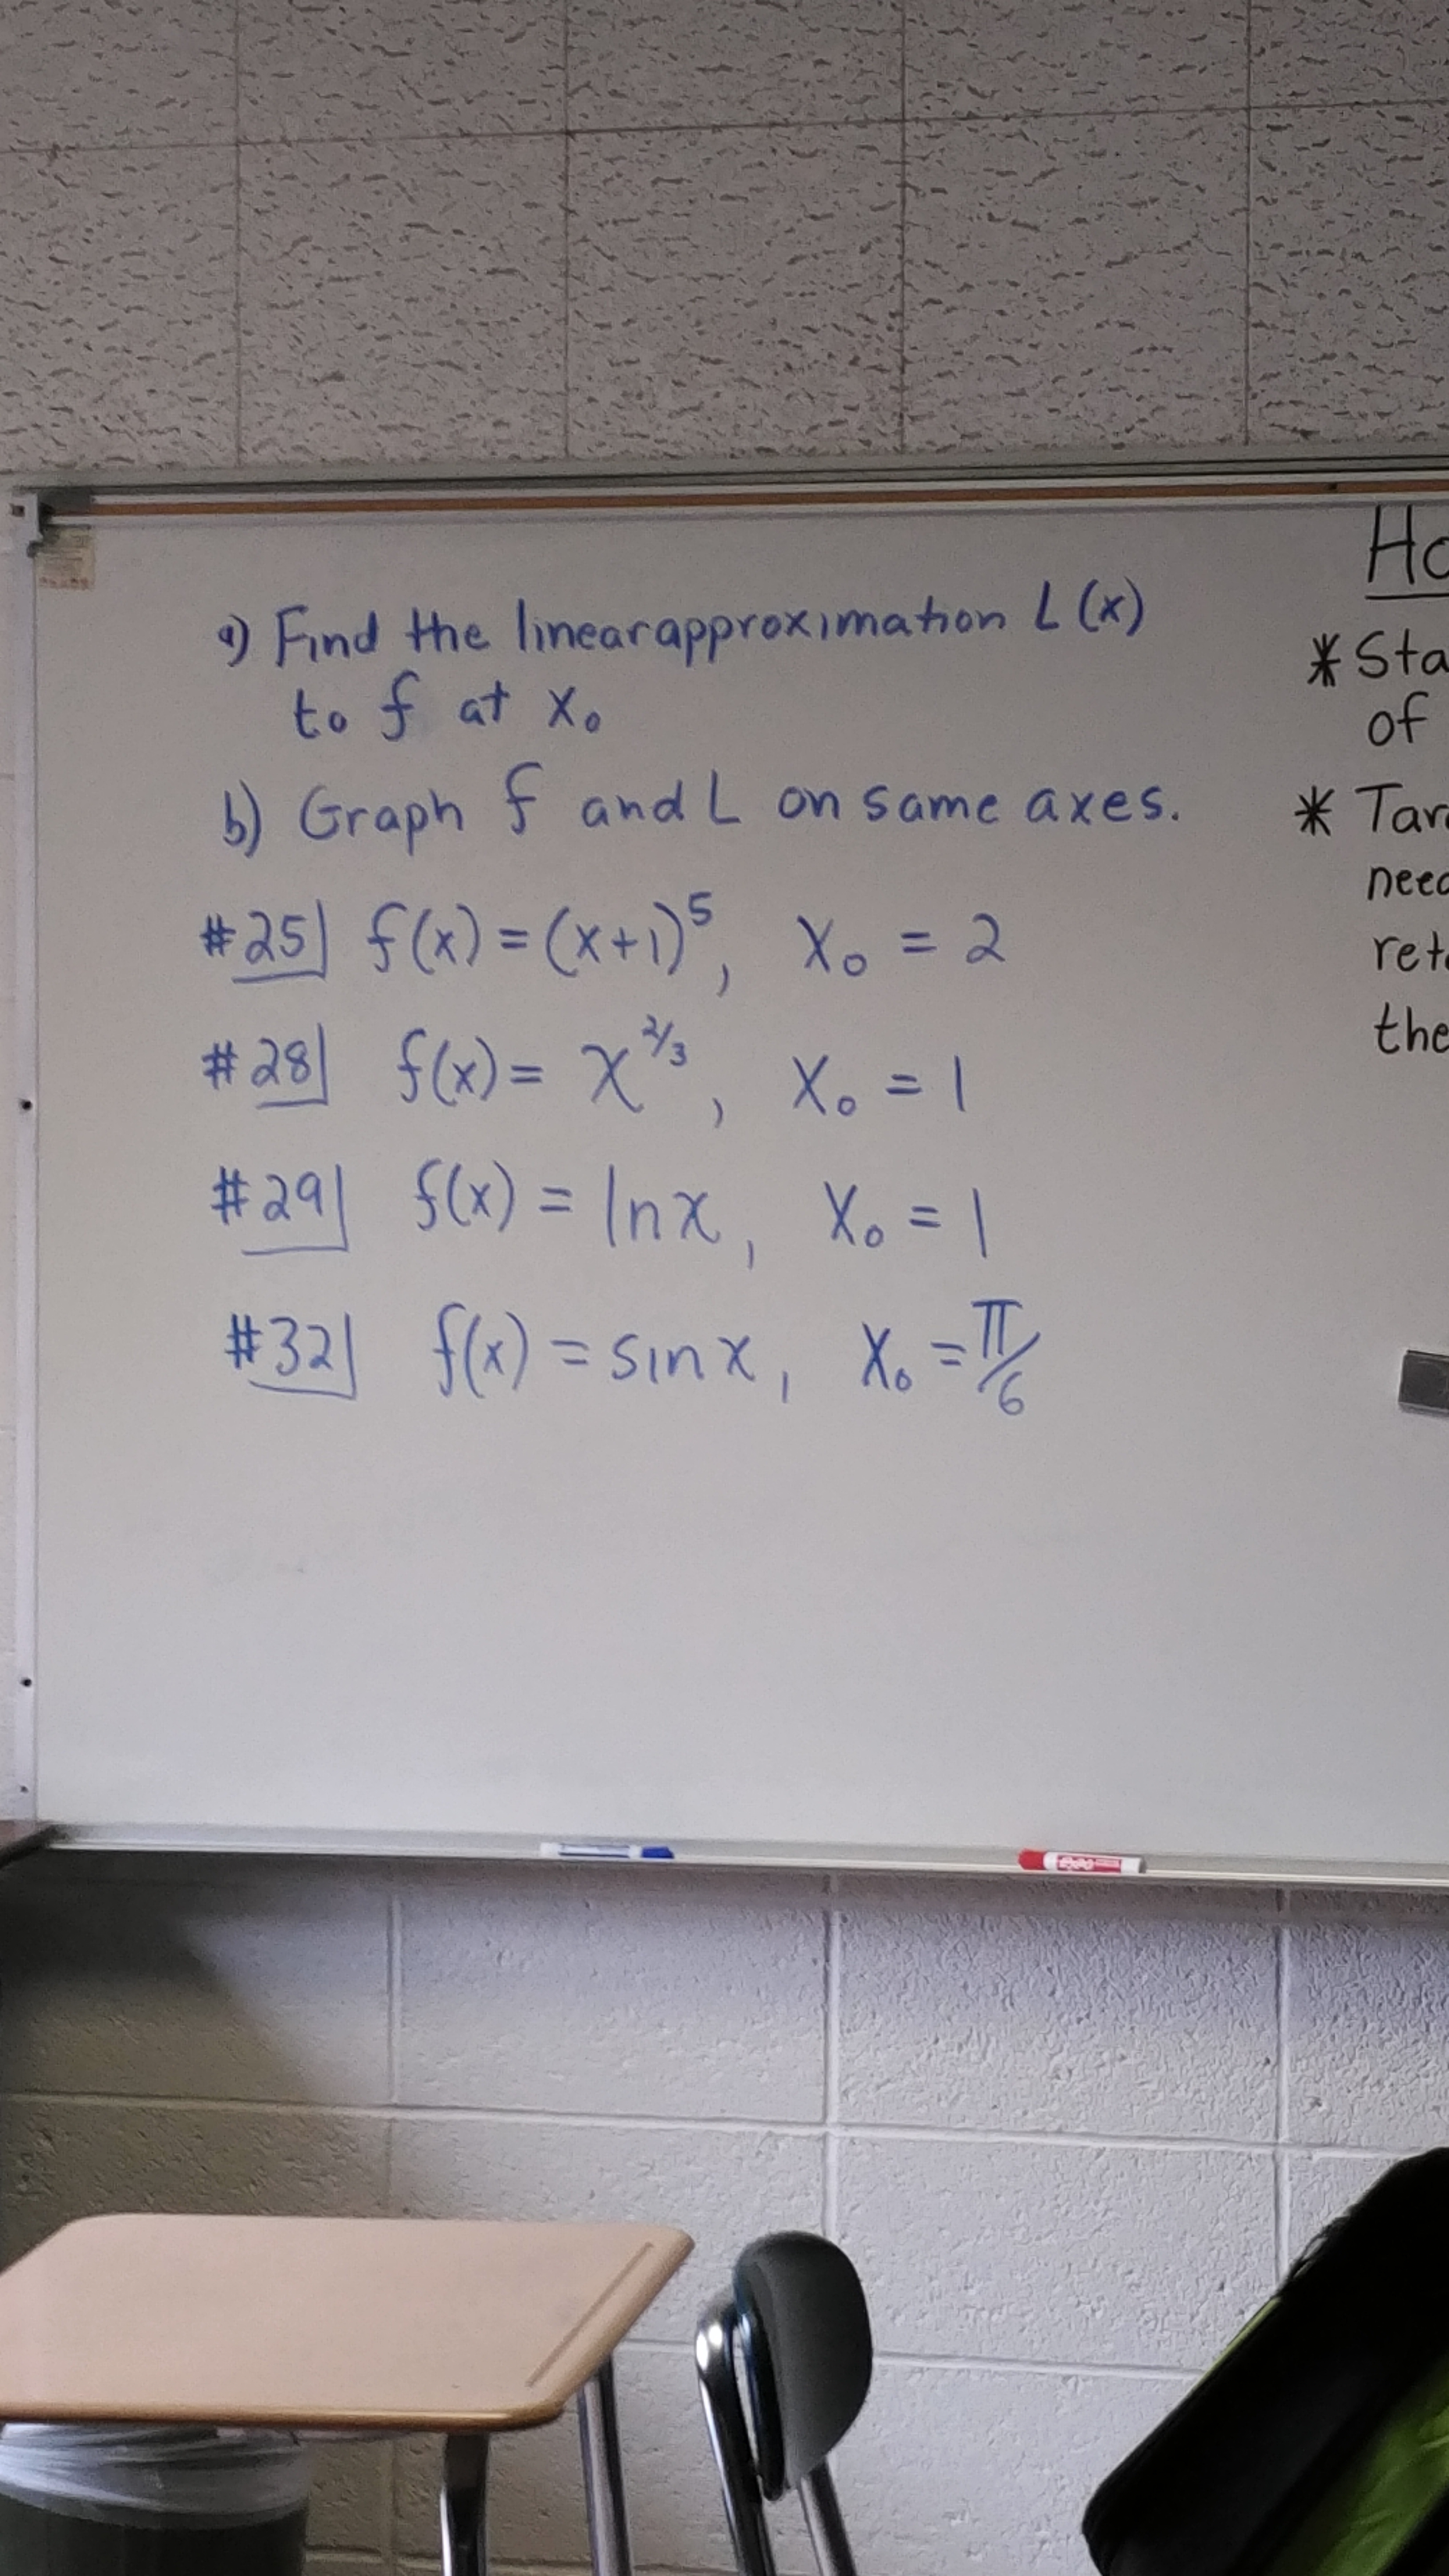 a) Find the linear approximation L(x)
to f at x₀
b) Graph f and L on same axes.
#25| f(x) = (x+1)⁵, x₀ = 2
#28| f(x) = x^2/3, x₀ = 1
#29| f(x) = ln x, x₀ = 1
#32| f(x) = sin x, x₀ = π/6
Ho
* Sta
of
* Tar
need
ret
the